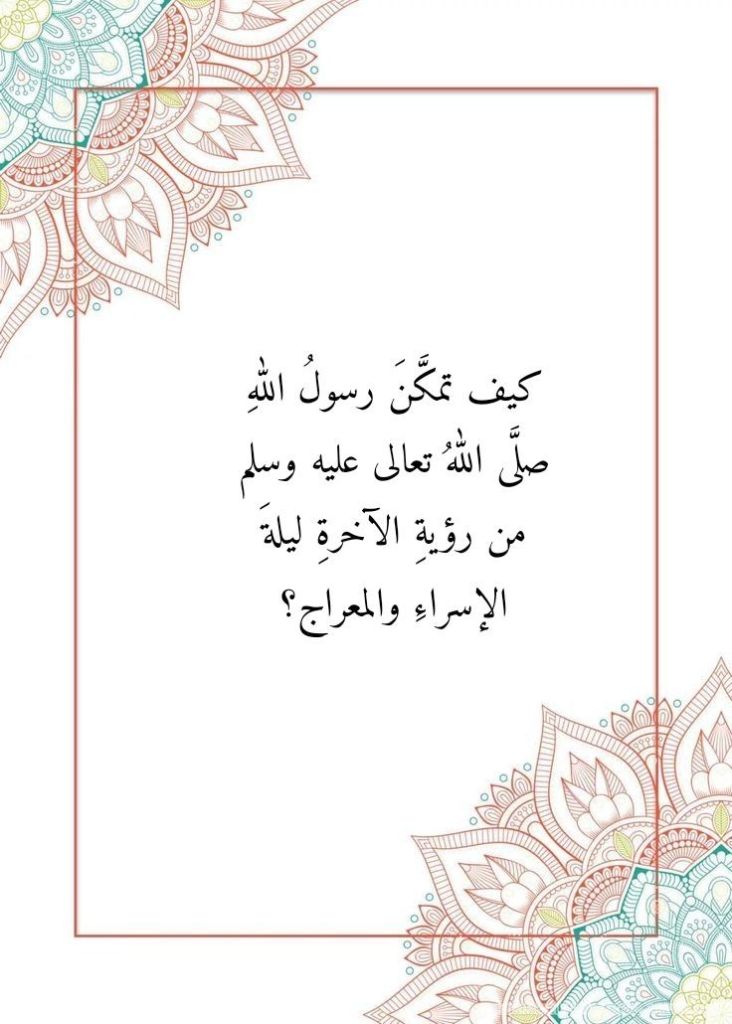 كيف تمكَّنَ رسولُ اللهِ
صلَّى اللهُ تعالى عليه وسلم
من رؤيةِ الآخرةِ ليلةَ
الإسراءِ والمعراج؟